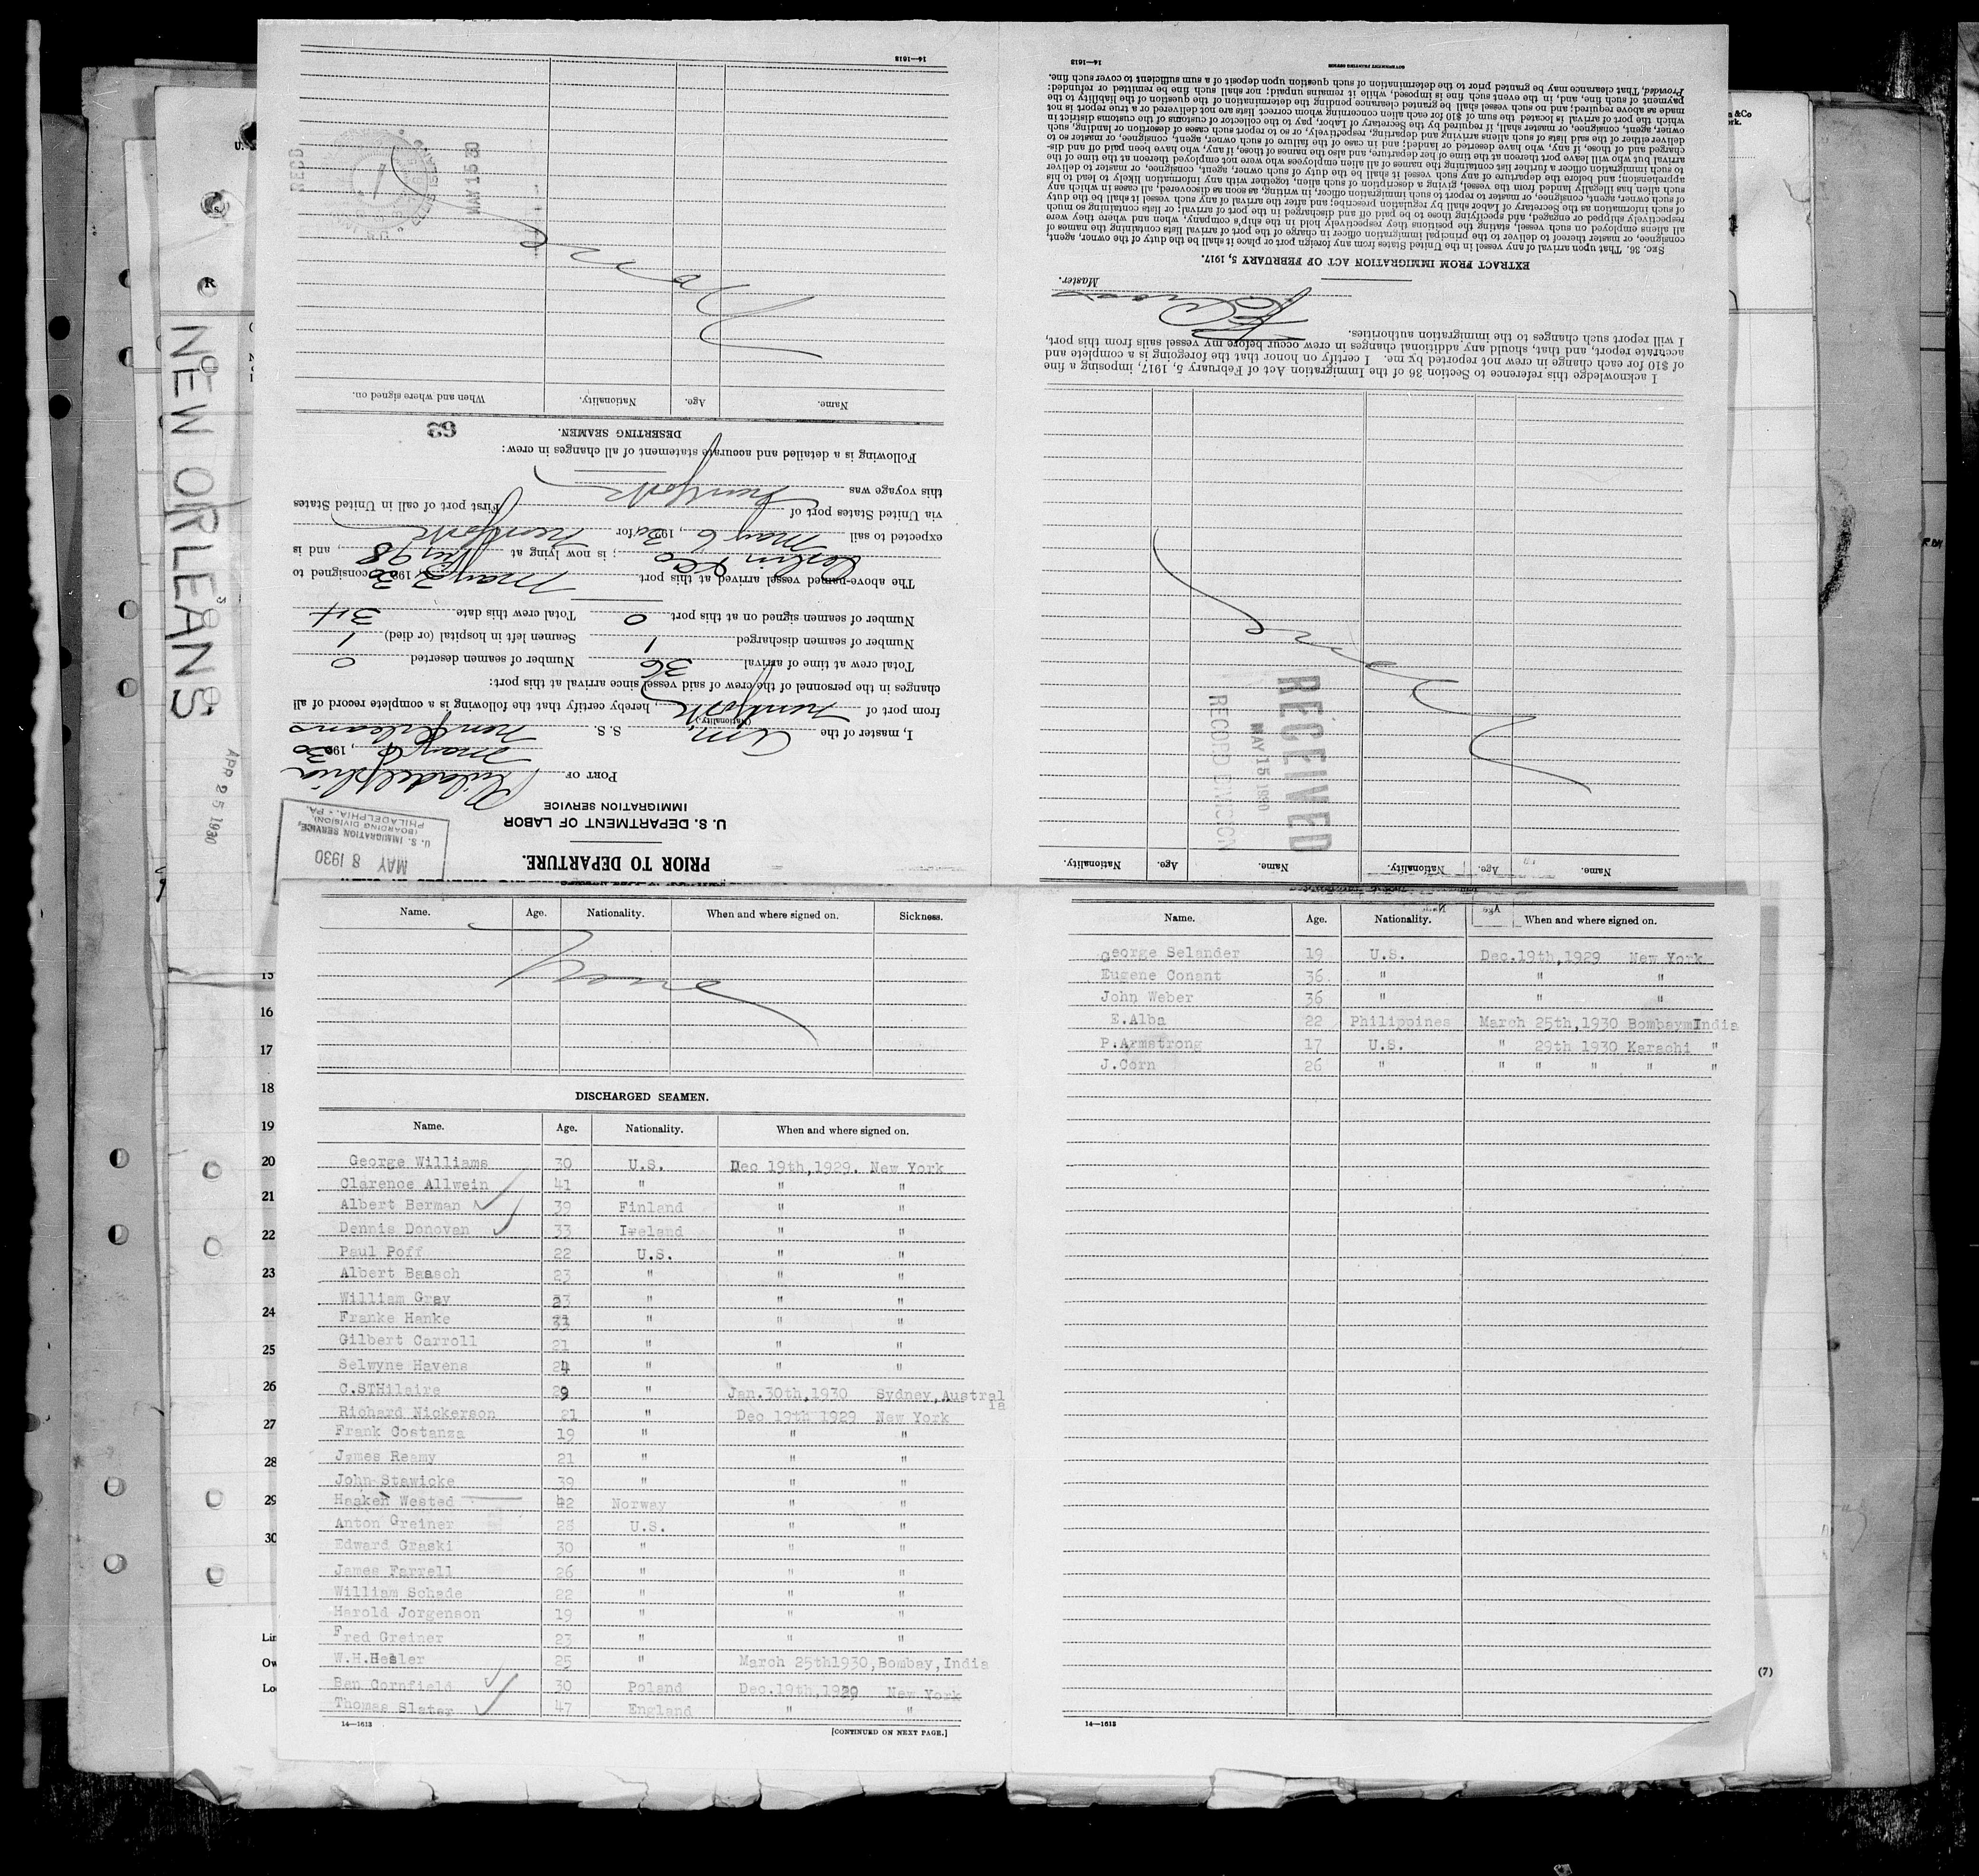 NEW ORLEANS
APR 25 1930
PRIOR TO DEPARTURE.
U. S. DEPARTMENT OF LABOR
IMMIGRATION SERVICE
MAY 8 1930
U. S. IMMIGRATION SERVICE
(BOARDING DIVISION)
PHILADELPHIA, PA.
PORT OF Philadelphia
May 6, 1930
I, master of the Am. S. S. New Orleans
(Nationality)
from port of New York, hereby certify that the following is a complete record of all
changes in the personnel of the crew of said vessel since arrival at this port:
Total crew at time of arrival 36 Number of seamen deserted 0
Number of seamen discharged 1 Seamen left in hospital (or died) 1
Number of seamen signed on at this port 0 Total crew this date 34
The above-named vessel arrived at this port May 2, 1930 consigned to
; is now lying at Pier 98, and is
expected to sail May 6, 1930 for New York
via United States port of First port of call in United States
this voyage was New York
Following is a detailed and accurate statement of all changes in crew:
63
DESERTING SEAMEN.
Name. Age. Nationality. When and where signed on.
None
REC'D
MAY 15 30
14—1613
Name. Age. Nationality. Name. Age. Nationality.
None
RECEIVED
MAY 15 1930
RECORD DIVISION
I acknowledge this reference to Section 36 of the Immigration Act of February 5, 1917, imposing a fine
of $10 for each change in crew not reported by me. I certify on honor that the foregoing is a complete and
accurate report, and that, should any additional changes in crew occur before my vessel sails from this port,
I will report such changes to the immigration authorities.
Master.
EXTRACT FROM IMMIGRATION ACT OF FEBRUARY 5, 1917.
SEC. 36. That upon arrival of any vessel in the United States from any foreign port or place it shall be the duty of the owner, agent,
consignee, or master thereof to deliver to the principal immigration officer in charge of the port of arrival lists containing the names of
all aliens employed on such vessel, stating the positions they respectively hold in the ship's company, when and where they were
respectively shipped or engaged, and specifying those to be paid off and discharged in the port of arrival; or lists containing so much
of such information as the Secretary of Labor shall by regulation prescribe; and after the arrival of any such vessel it shall be the duty
of such owner, agent, consignee, or master to report to such immigration officer, in writing, as soon as discovered, all cases in which any
such alien has illegally landed from the vessel, giving a description of such alien, together with any information likely to lead to his
apprehension; and before the departure of any such vessel it shall be the duty of such owner, agent, consignee, or master to deliver
to such immigration officer a further list containing the names of all alien employees who were not employed thereon at the time of the
arrival but who will leave port thereon at the time of her departure, and also the names of those, if any, who have been paid off and dis-
charged and of those, if any, who have deserted or landed; and in case of the failure of such owner, agent, consignee, or master to
deliver either of the said lists of such aliens arriving and departing, respectively, or so to report such cases of desertion or landing, such
owner, agent, consignee, or master shall, if required by the Secretary of Labor, pay to the collector of customs of the customs district in
which the port of arrival is located the sum of $10 for each alien concerning whom correct lists are not delivered or a true report is not
made as above required; and no such vessel shall be granted clearance pending the determination of the question of the liability to the
payment of such fine, and, in the event such fine is imposed, while it remains unpaid; nor shall such fine be remitted or refunded:
Provided, That clearance may be granted prior to the determination of such question upon deposit of a sum sufficient to cover such fine.
GOVERNMENT PRINTING OFFICE
14—1613
Name. Age. Nationality. When and where signed on. Sickness.
None
DISCHARGED SEAMEN.
Name. Age. Nationality. When and where signed on.
George Williams 30 U.S. Dec 19th,1929. New York
Clarence Allwein 41 " " "
Albert Berman 39 Finland " "
Dennis Donovan 33 Ireland " "
Paul Poff 22 U.S. " "
Albert Baasch 23 " " "
William Gray 23 " " "
Franke Hanke 31 " " "
Gilbert Carroll 21 " " "
Selwyne Havens 24 " " "
C.STHilaire 29 " Jan.30th,1930 Sydney,Austral
ia
Richard Nickerson 21 " Dec 19th 1929 New York
Frank Costanza 19 " " "
James Reamy 21 " " "
John Stawicke 39 " " "
Haaken Wested 42 Norway " "
Anton Greiner 28 U.S. " "
Edward Graski 30 " " "
James Farrell 26 " " "
William Schade 22 " " "
Harold Jorgenson 19 " " "
Fred Greiner 23 " " "
W.H.Hesler 25 " March 25th1930,Bombay,India
Ben Cornfield 30 Poland Dec.19th,1929 New York
Thomas Slater 47 England " "
14—1613
[CONTINUED ON NEXT PAGE.]
Name. Age. Nationality. When and where signed on.
George Selander 19 U.S. Dec.19th,1929 New York
Eugene Conant 36 " " "
John Weber 36 " " "
E.Alba 22 Philippines March 25th,1930 BombaymIndia
P.Armstrong 17 U.S. " 29th 1930 Karachi "
J.Corn 26 " " " " " "
14—1613
15
16
17
18
19
20
21
22
23
24
25
26
27
28
29
30
(7)